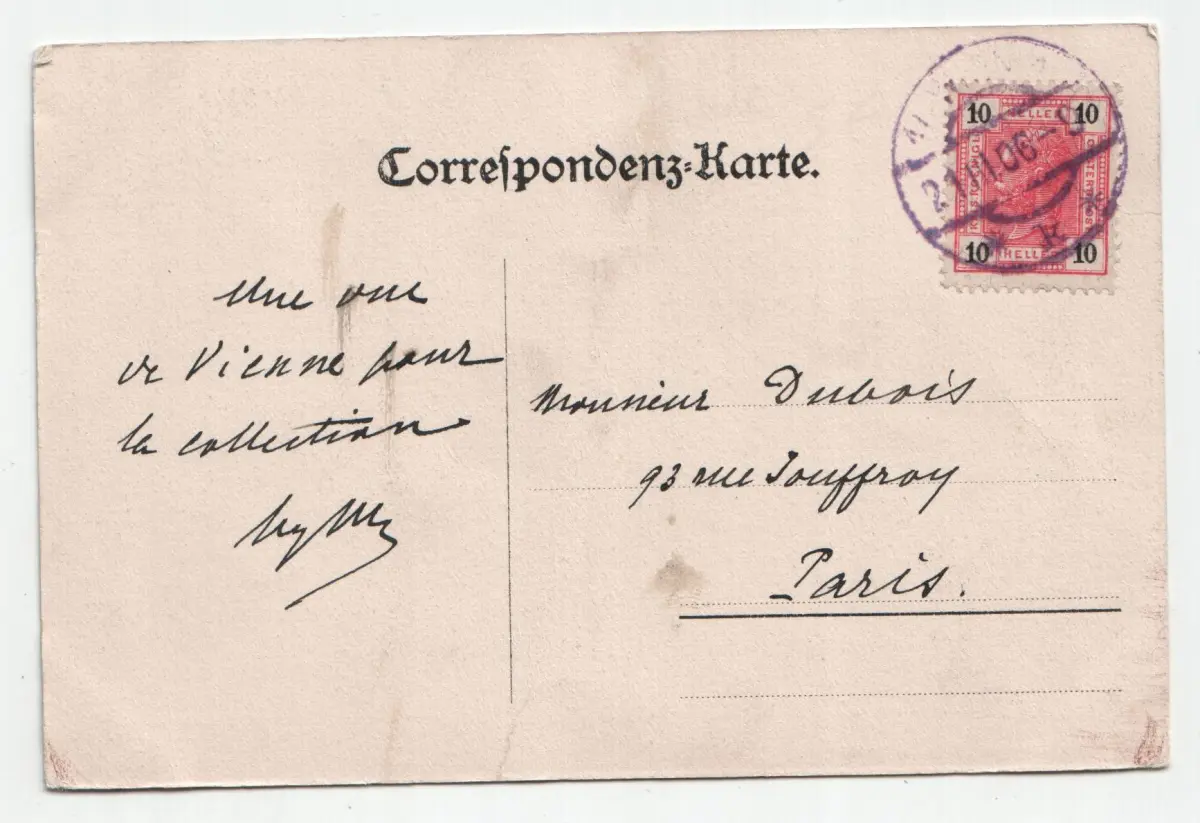 Correspondenz-Karte.
10 HELLER 10
10 HELLER 10
21.III.06-9
* k *
Une vue
de Vienne pour
la collection
Monsieur Dubois
93 rue Jouffroy
Paris.